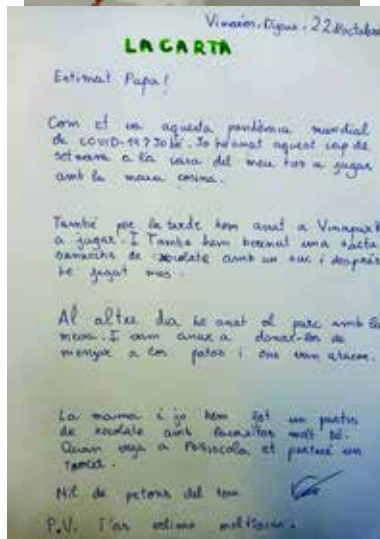 Vinaròs, Dijous, 22 d'octubre
LA CARTA
Estimat Papa!
Com et va aquesta pandèmia mundial
de COVID-19? Jo bé. Jo he anat aquest cap de
setmana a la casa del meu tios a jugar
amb la meua cosina.
També per la tarde hem anat a Vinapark
a jugar. I També hem berenat una
de xocolate amb un suc i després
he jugat mes.
Al altre dia he anat al parc amb la
meua. I vam anar a donar-los de
menjar a los patos i ens van atacar.
La mama i jo hem fet un pastis
de xocolate amb lacasitos molt bó.
Quan vaja a Peñiscola et portaré un
trocet.
Mil de petons del teu
P.V. T'as estimo moltissim.